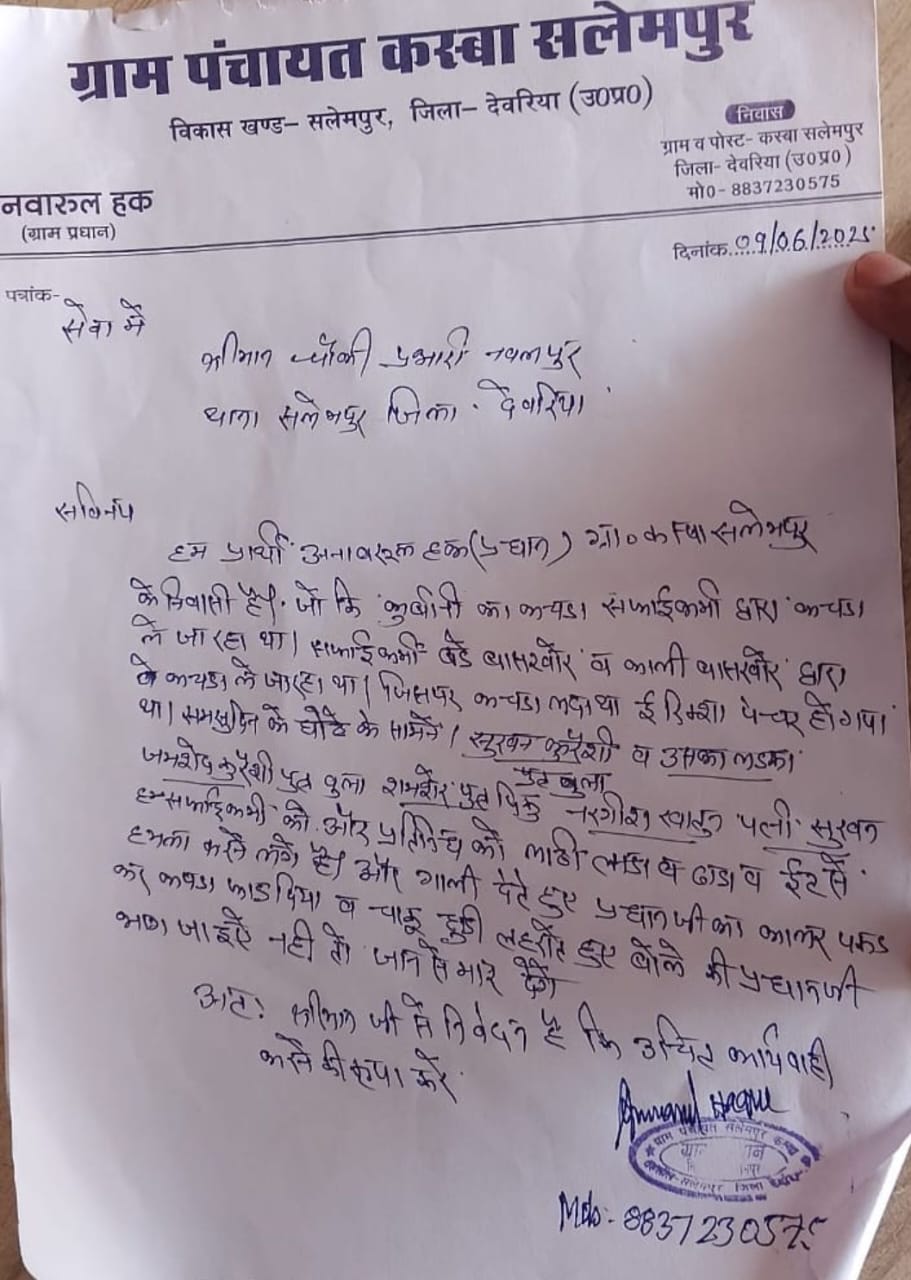 ग्राम पंचायत कस्बा सलेमपुर
विकास खण्ड– सलेमपुर, जिला– देवरिया (उ0प्र0)
निवास
ग्राम व पोस्ट- कस्बा सलेमपुर
जिला- देवरिया (उ0प्र0)
मो0- 8837230575
नवारुल हक
(ग्राम प्रधान)
दिनांक 09/06/2025
पत्रांक-
सेवा में
श्रीमान चौकी प्रभारी नवलपुर
थाना सलेमपुर जिला देवरिया
सविनय
हम प्रार्थी अनावरूल हक (प्रधान) ग्रा० कस्बा सलेमपुर
के निवासी है। जो कि कुर्बानी का कचडा सफाईकर्मी द्वारा कचडा
ले जा रहा था। सफाईकर्मी बडे व काली द्वारा
कचडा ले जा रहा था। जिसपर कचडा लदा था ई रिक्शा पंचर हो गया
था। समसुदिन के के सामने। सुरवन कुरैशी व उसका लडका
जमशेद कुरैशी पुत्र वुला शमशेर पुत्र नरगीश खातुन पत्नी सुरवन
पुत्र वुला
सफाईकर्मी को और प्रतिनिध को लाठी व डन्डा व ईट से
हमला करने लगे है। और गाली देते हुए प्रधान जी का कालर पकड
कर कपडा फाड दिया व चाकू छुडी लहराते हुए बोले की प्रधान जी
भाग जाईए नही तो जान से मार देंगे
अतः श्रीमान जी से निवेदन है कि उचित कार्यवाही
करने की कृपा करें
Anwarul Haque
ग्राम पंचायत सलेमपुर कस्बा
Mob- 8837230575